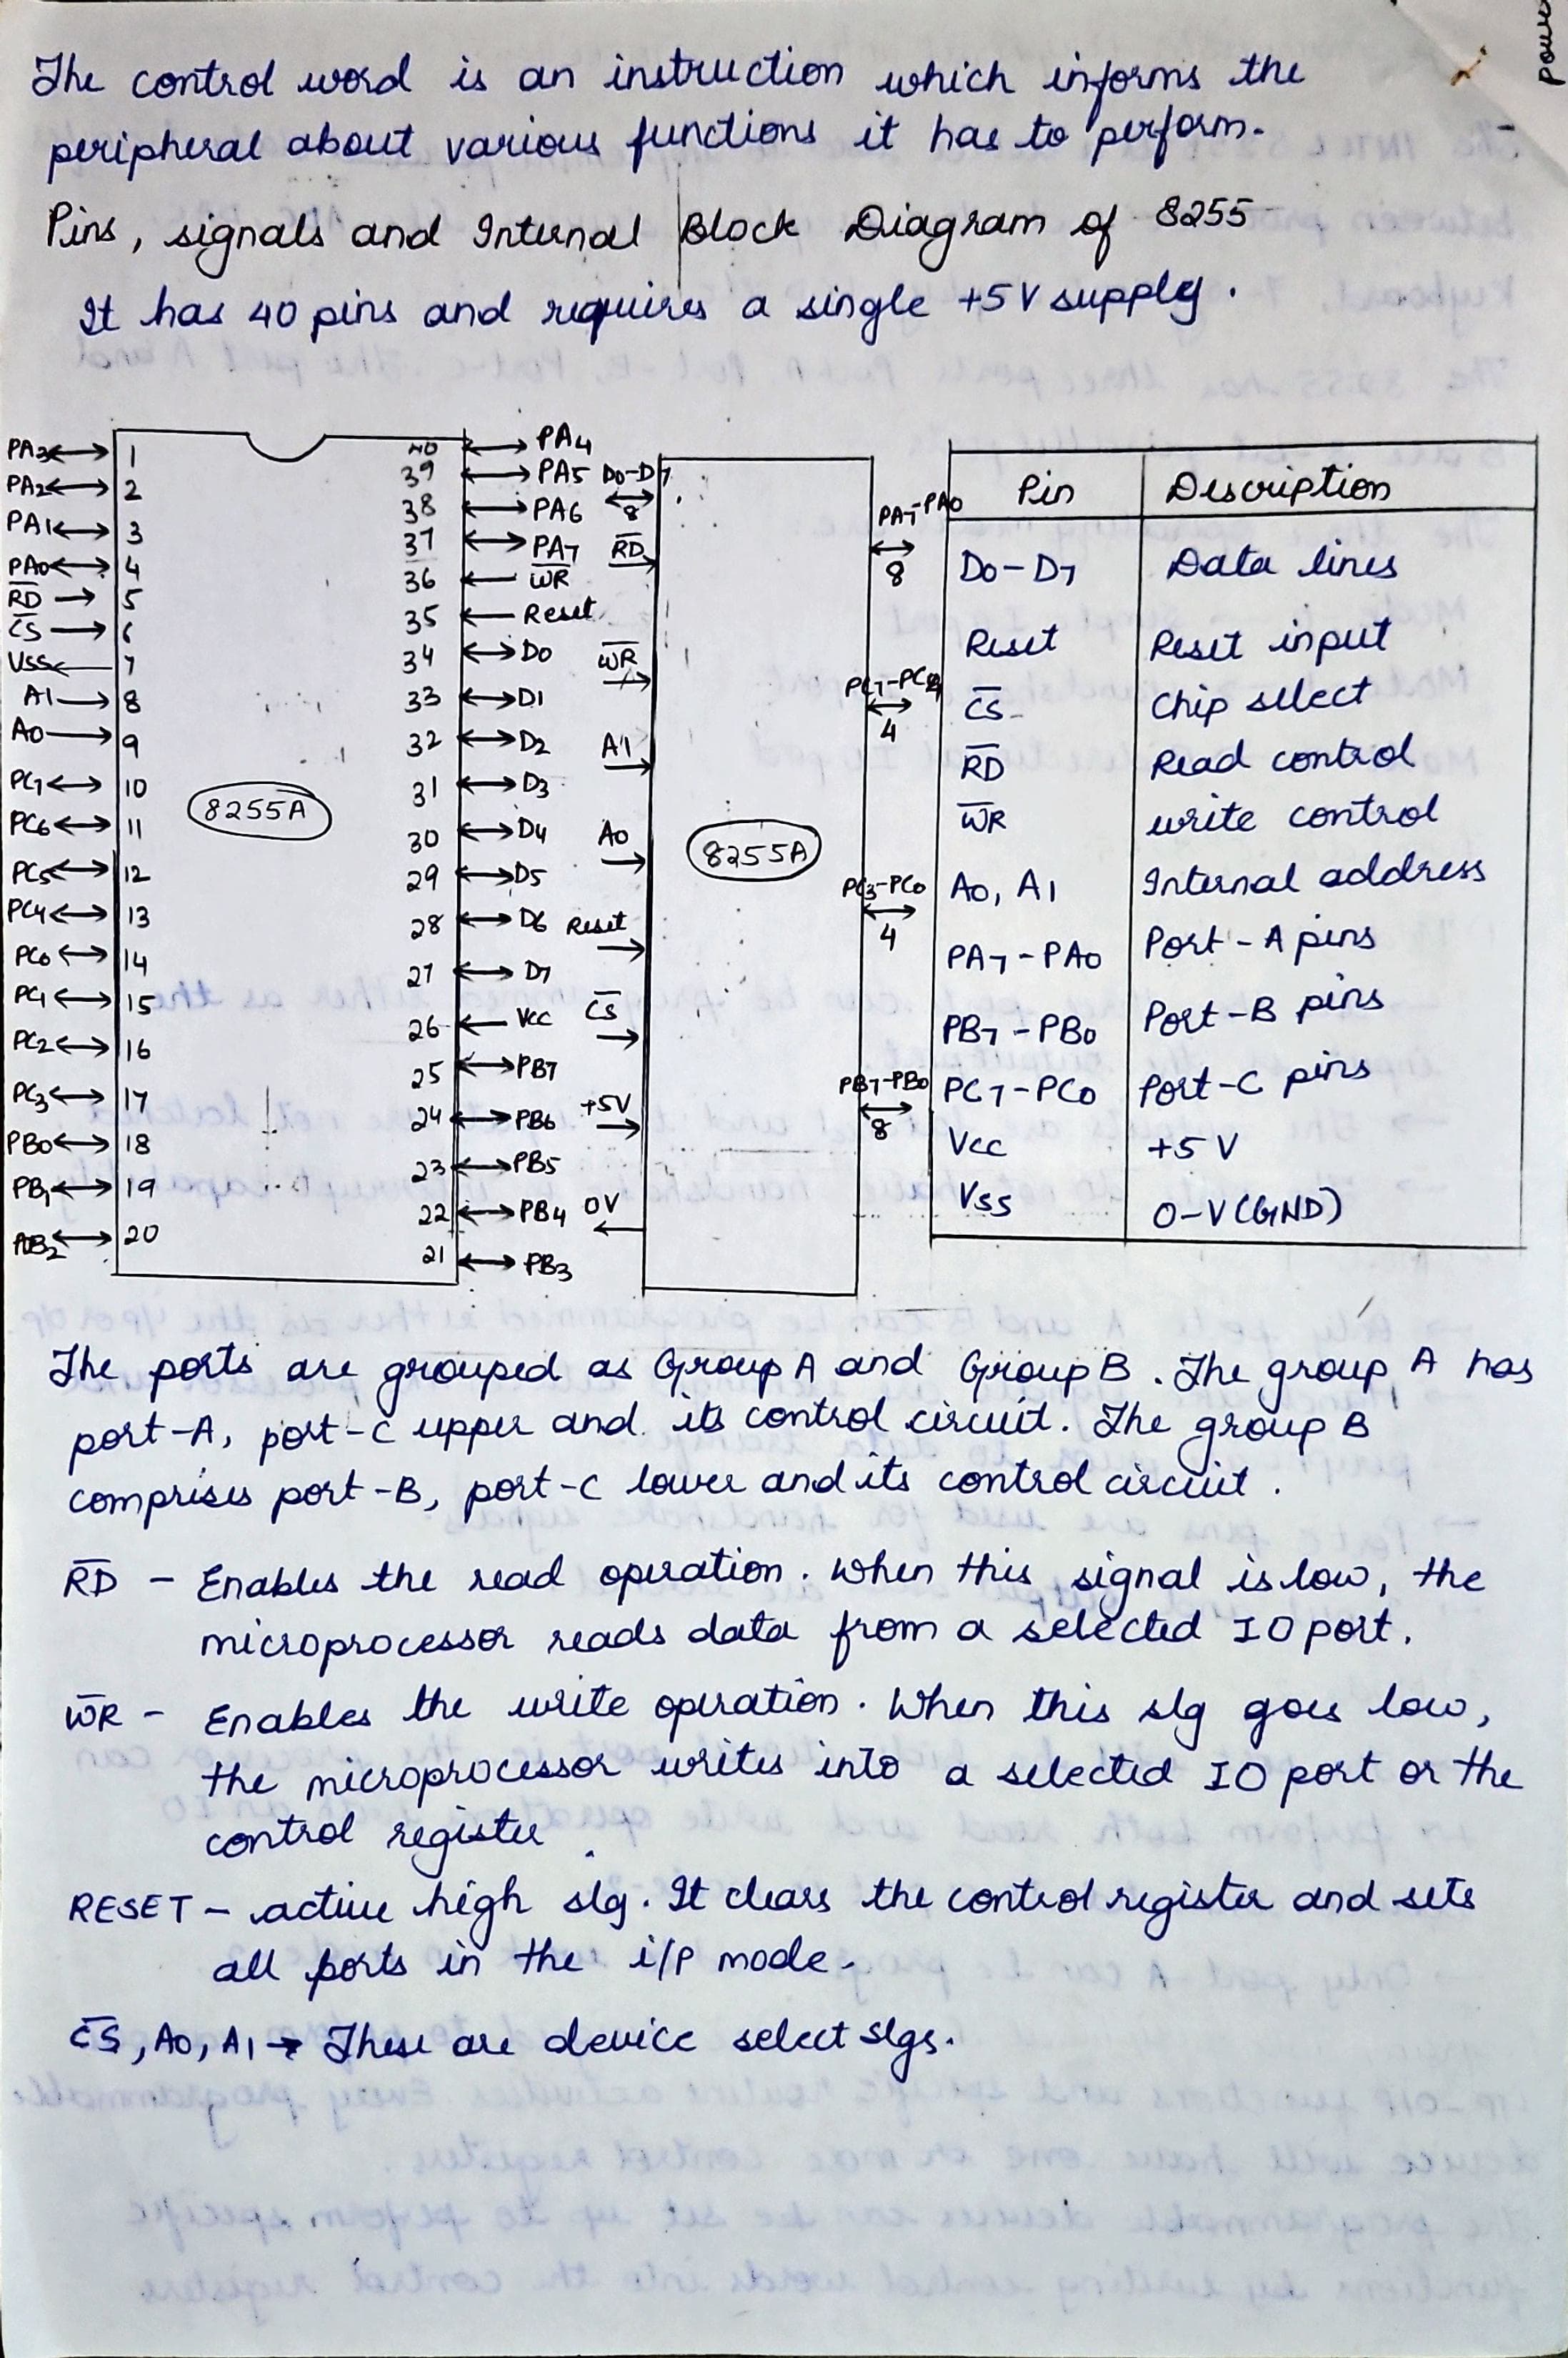 The control word is an instruction which informs the
peripheral about various functions it has to perform.
Pins, signals and Internal Block Diagram of 8255
It has 40 pins and requires a single +5V supply.
PA3 1
PA2 2
PA1 3
PA0 4
R̅D̅ 5
C̅S̅ 6
VSS 7
A1 8
A0 9
PC7 10
PC6 11
PC5 12
PC4 13
PC0 14
PC1 15
PC2 16
PC3 17
PB0 18
PB1 19
PB2 20
8255A
40 PA4
39 PA5
38 PA6
37 PA7
36 W̅R̅
35 Reset
34 D0
33 D1
32 D2
31 D3
30 D4
29 D5
28 D6
27 D7
26 Vcc
25 PB7
24 PB6
23 PB5
22 PB4
21 PB3
D0-D7
8
R̅D̅
W̅R̅
A1
A0
Reset
C̅S̅
+5V
0V
8255A
PA7-PA0
8
PC7-PC4
4
PC3-PC0
4
PB7-PB0
8
Pin Description
D0-D7 Data lines
Reset Reset input
C̅S̅ Chip select
R̅D̅ Read control
W̅R̅ write control
A0, A1 Internal address
PA7-PA0 Port-A pins
PB7-PB0 Port-B pins
PC7-PC0 Port-C pins
Vcc +5 V
Vss 0-V(GND)
The ports are grouped as Group A and Group B. The group A has
port-A, port-C upper and its control circuit. The group B
comprises port-B, port-C lower and its control circuit.
R̅D̅ - Enables the read operation. When this signal is low, the
microprocessor reads data from a selected IO port.
W̅R̅ - Enables the write operation. When this slg goes low,
the microprocessor writes into a selected IO port or the
control register.
RESET - active high slg. It clears the control register and sets
all ports in the i/p mode.
C̅S̅, A0, A1 → These are device select slgs.